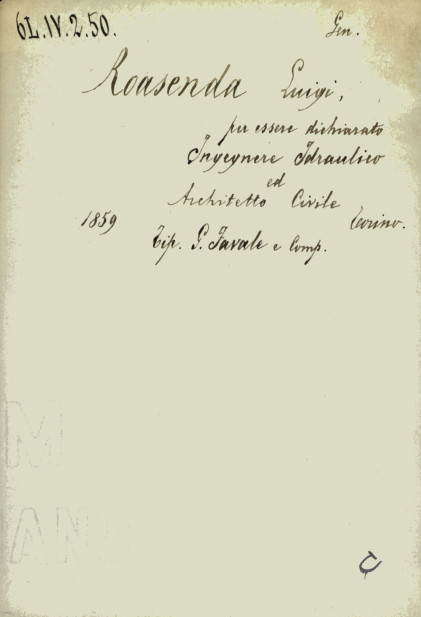 6L.IV.2.50.
Gen.
Roasenda Luigi,
per essere dichiarato
Ingegnere Idraulico
ed
Architetto Civile
1859
Torino.
Tip. G. Favale e Comp.
M
AN